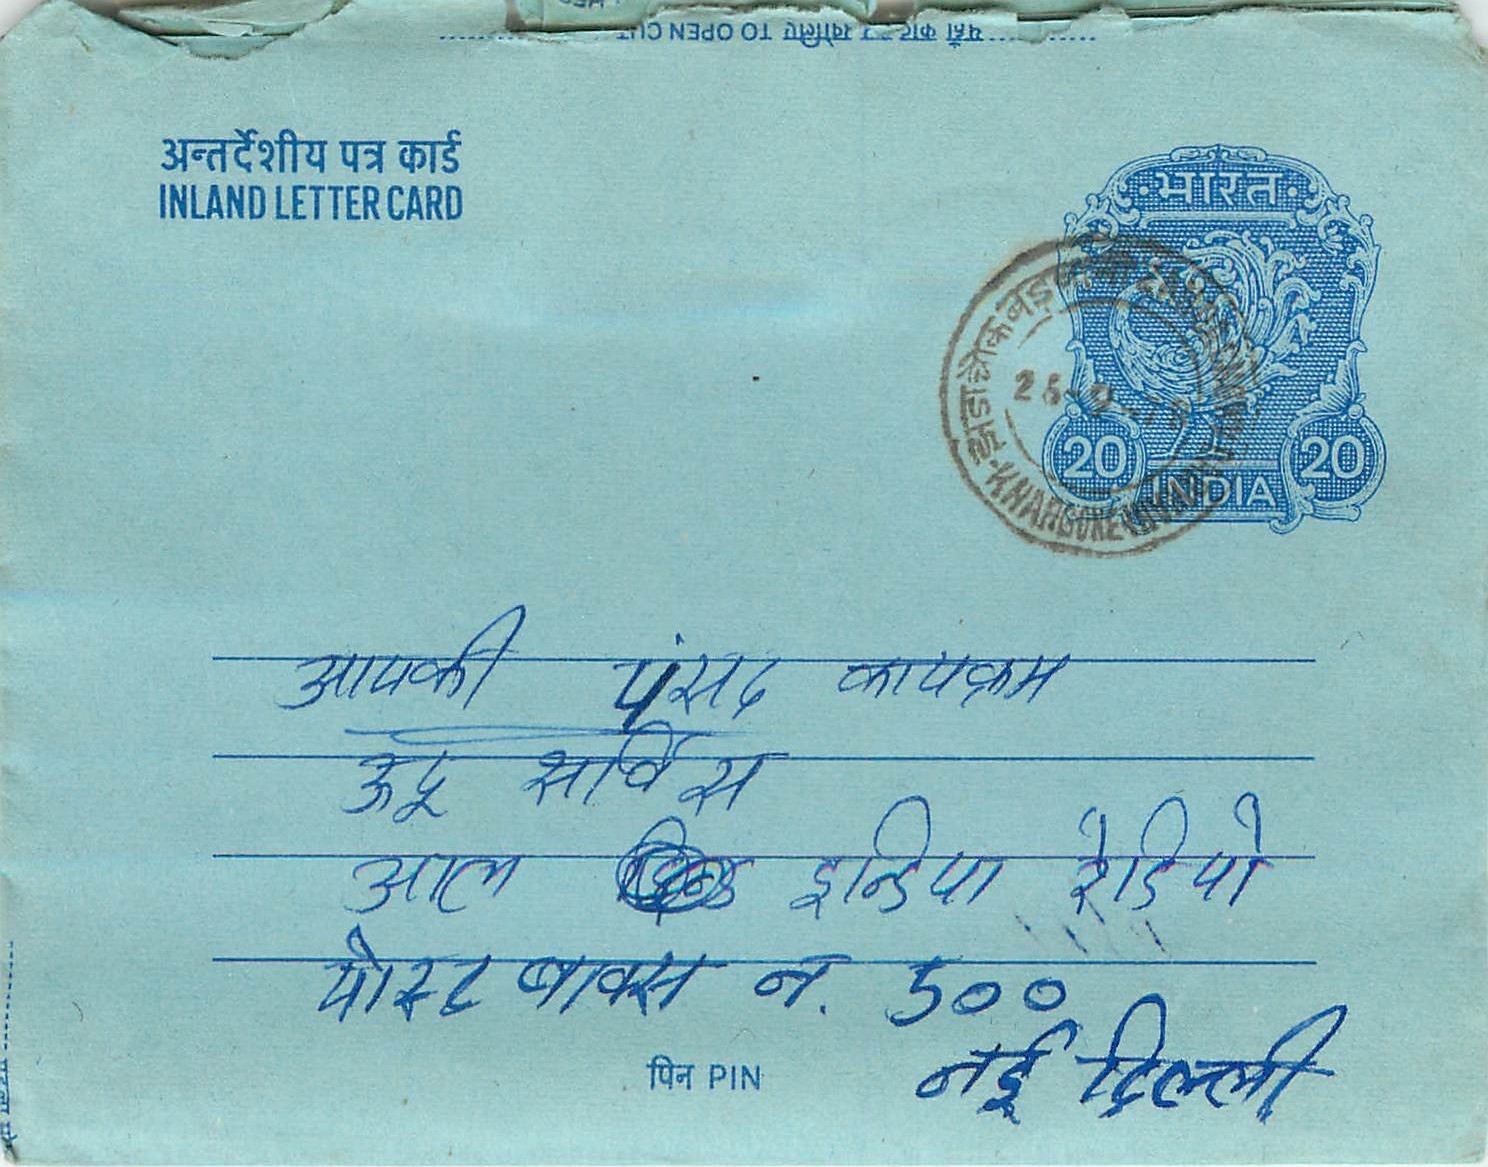 यहाँ काट कर खोलिए TO OPEN CUT
अन्तर्देशीय पत्र कार्ड
INLAND LETTER CARD
भारत
20 20
INDIA
KHARGONE
आपकी पंसद कायक्रम
ऊर्दू सर्विस
आल इन्डिया रेडियो
पोस्ट बाक्स न. 500
नई दिल्ली
पिन PIN